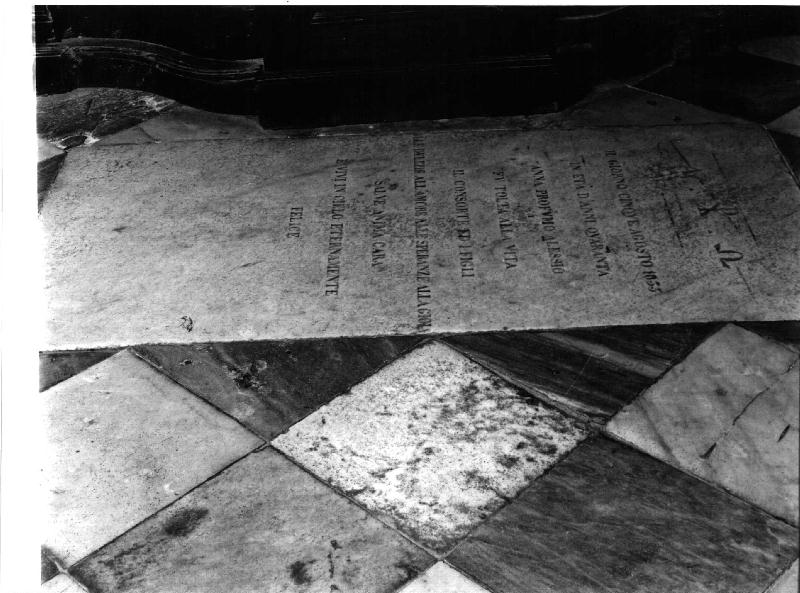 IL GIORNO CINQUE AGOSTO 1855
IN ETÀ D'ANNI QUARANTA
ANNA PROFUMO ALESSIO
FU TOLTA ALLA VITA
IL CONSORTE ED I FIGLI
ALL'AMOR ALLE SPERANZE ALLA GIOIA
SALVE ANIMA CARA
E VIVI IN CIELO ETERNAMENTE
FELICE